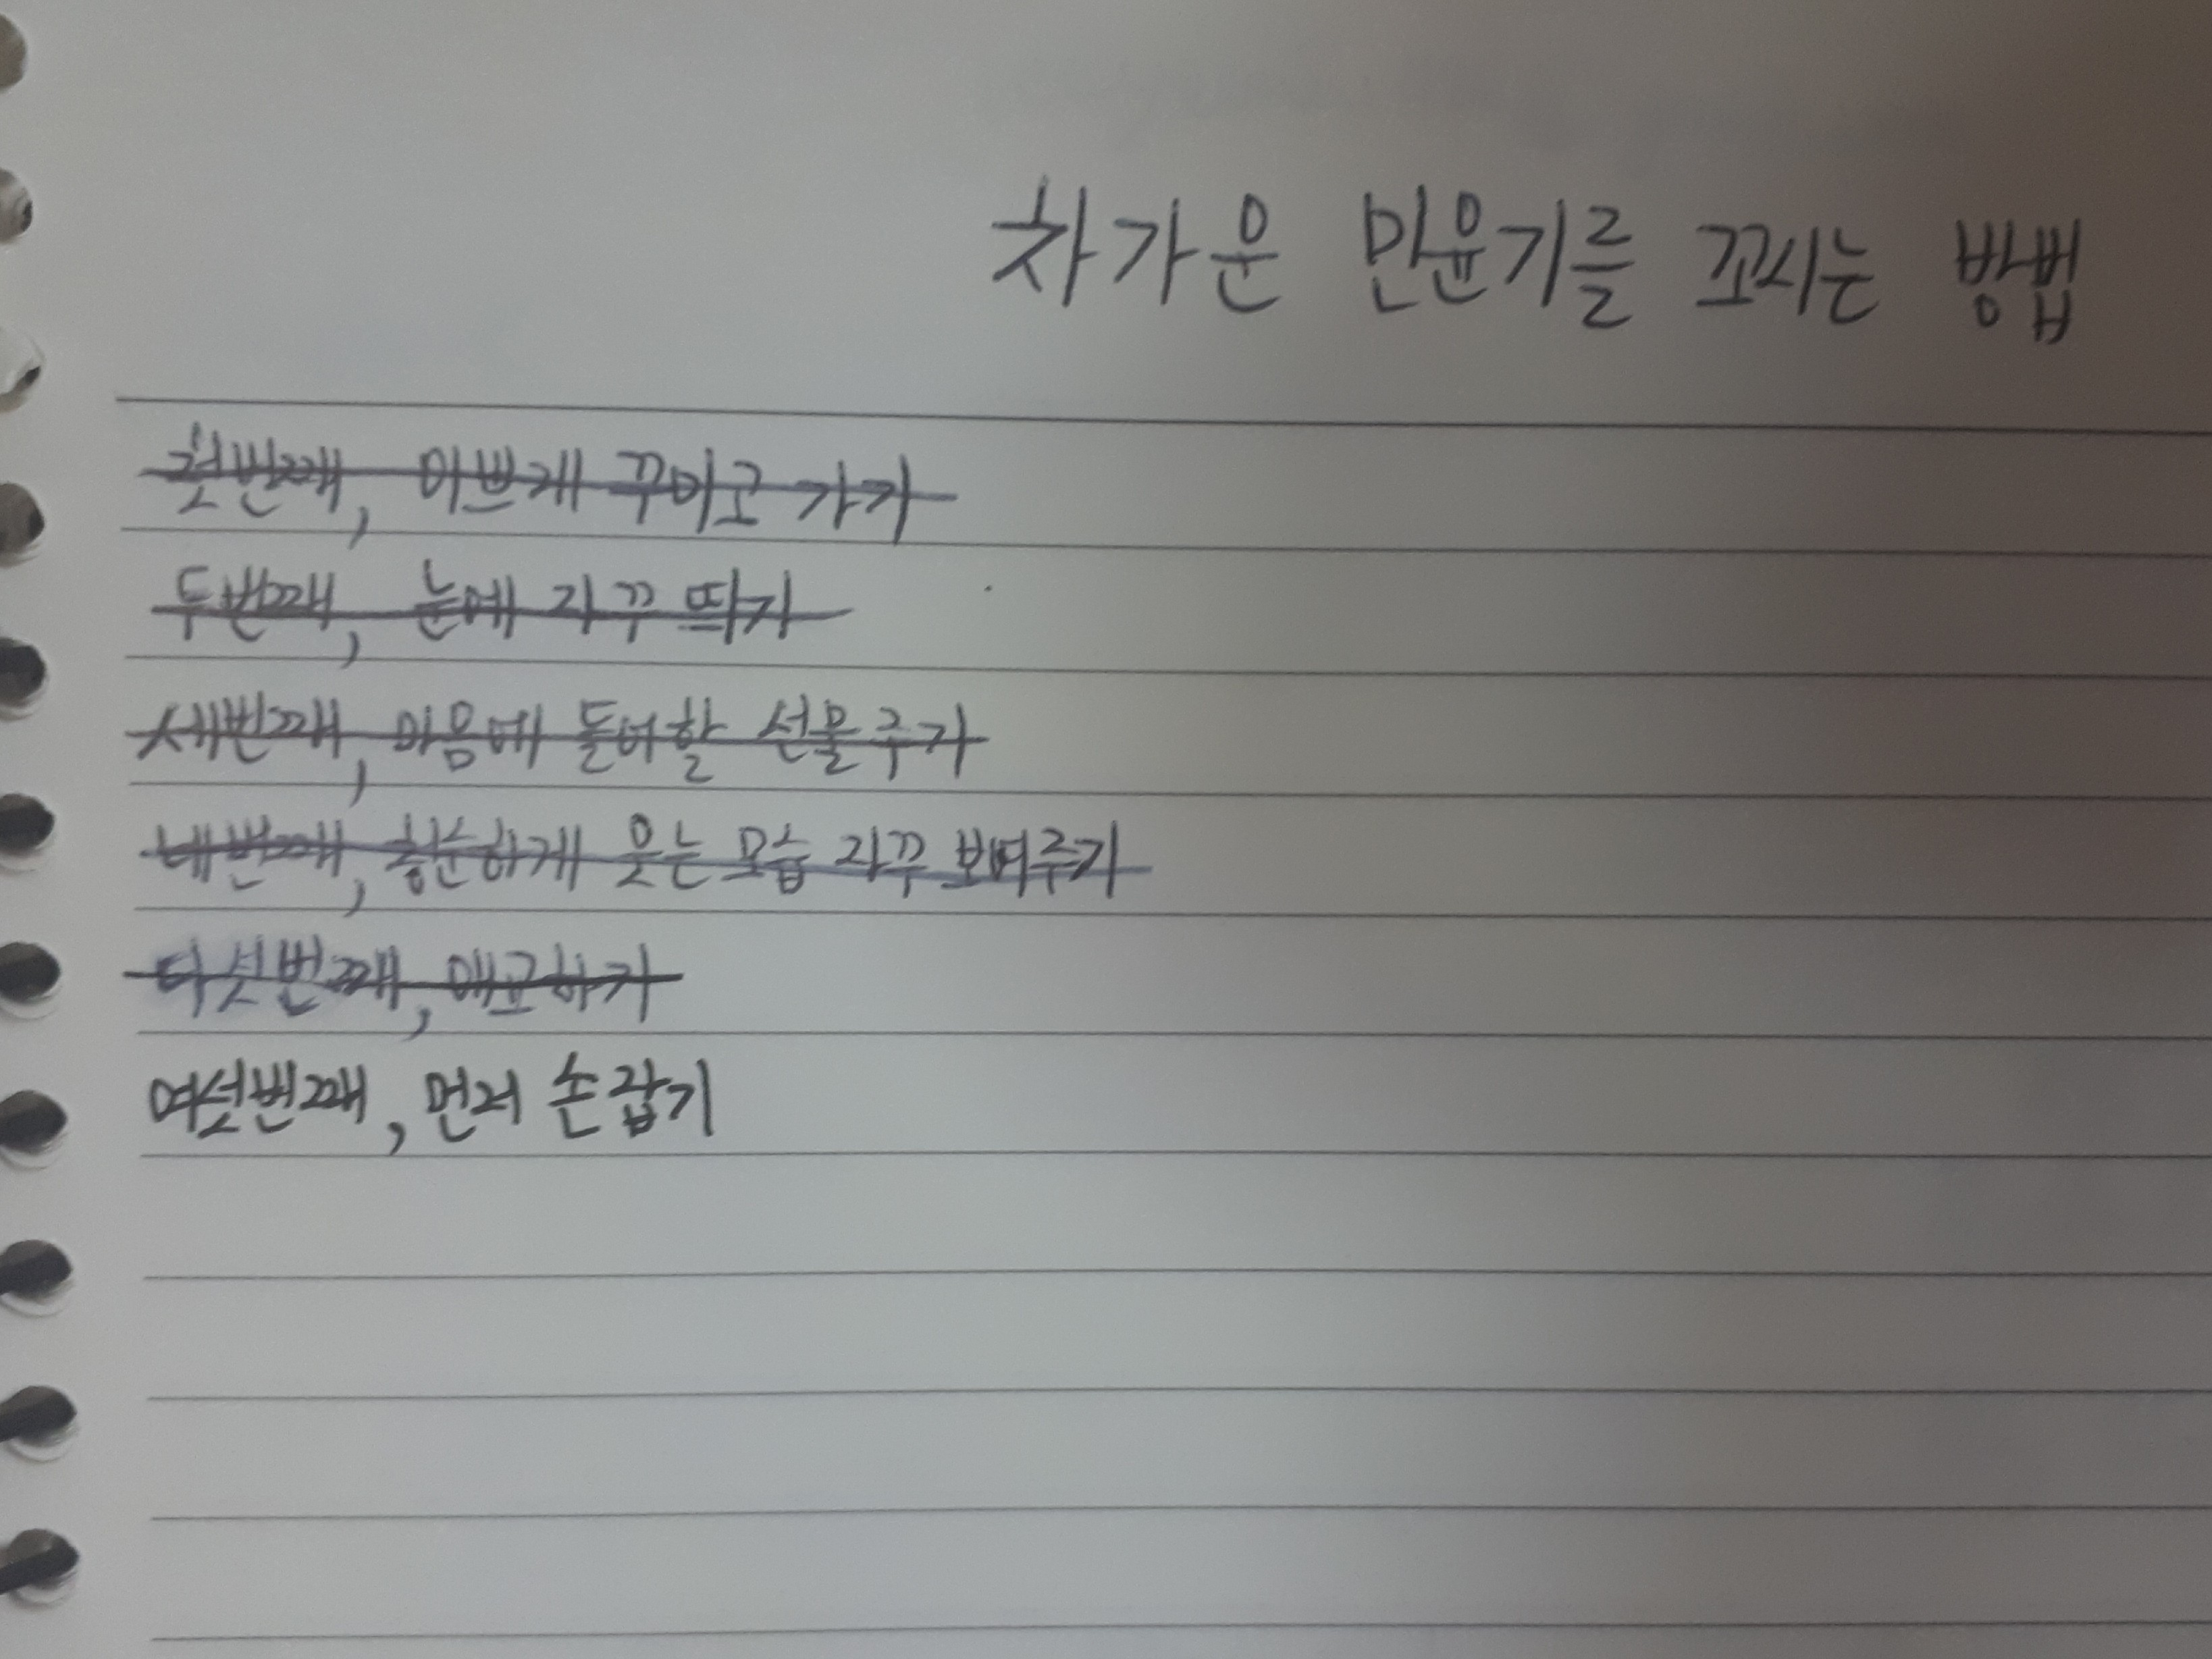 차가운 민윤기를 꼬시는 방법
첫번째, 이쁘게 꾸미고 가기
두번째, 눈에 자꾸 띄기
세번째, 마음에 들어할 선물주기
네번째, 흥순하게 웃는 모습 자꾸 보여주기
다섯번째, 애교하기
여섯번째, 먼저 손잡기